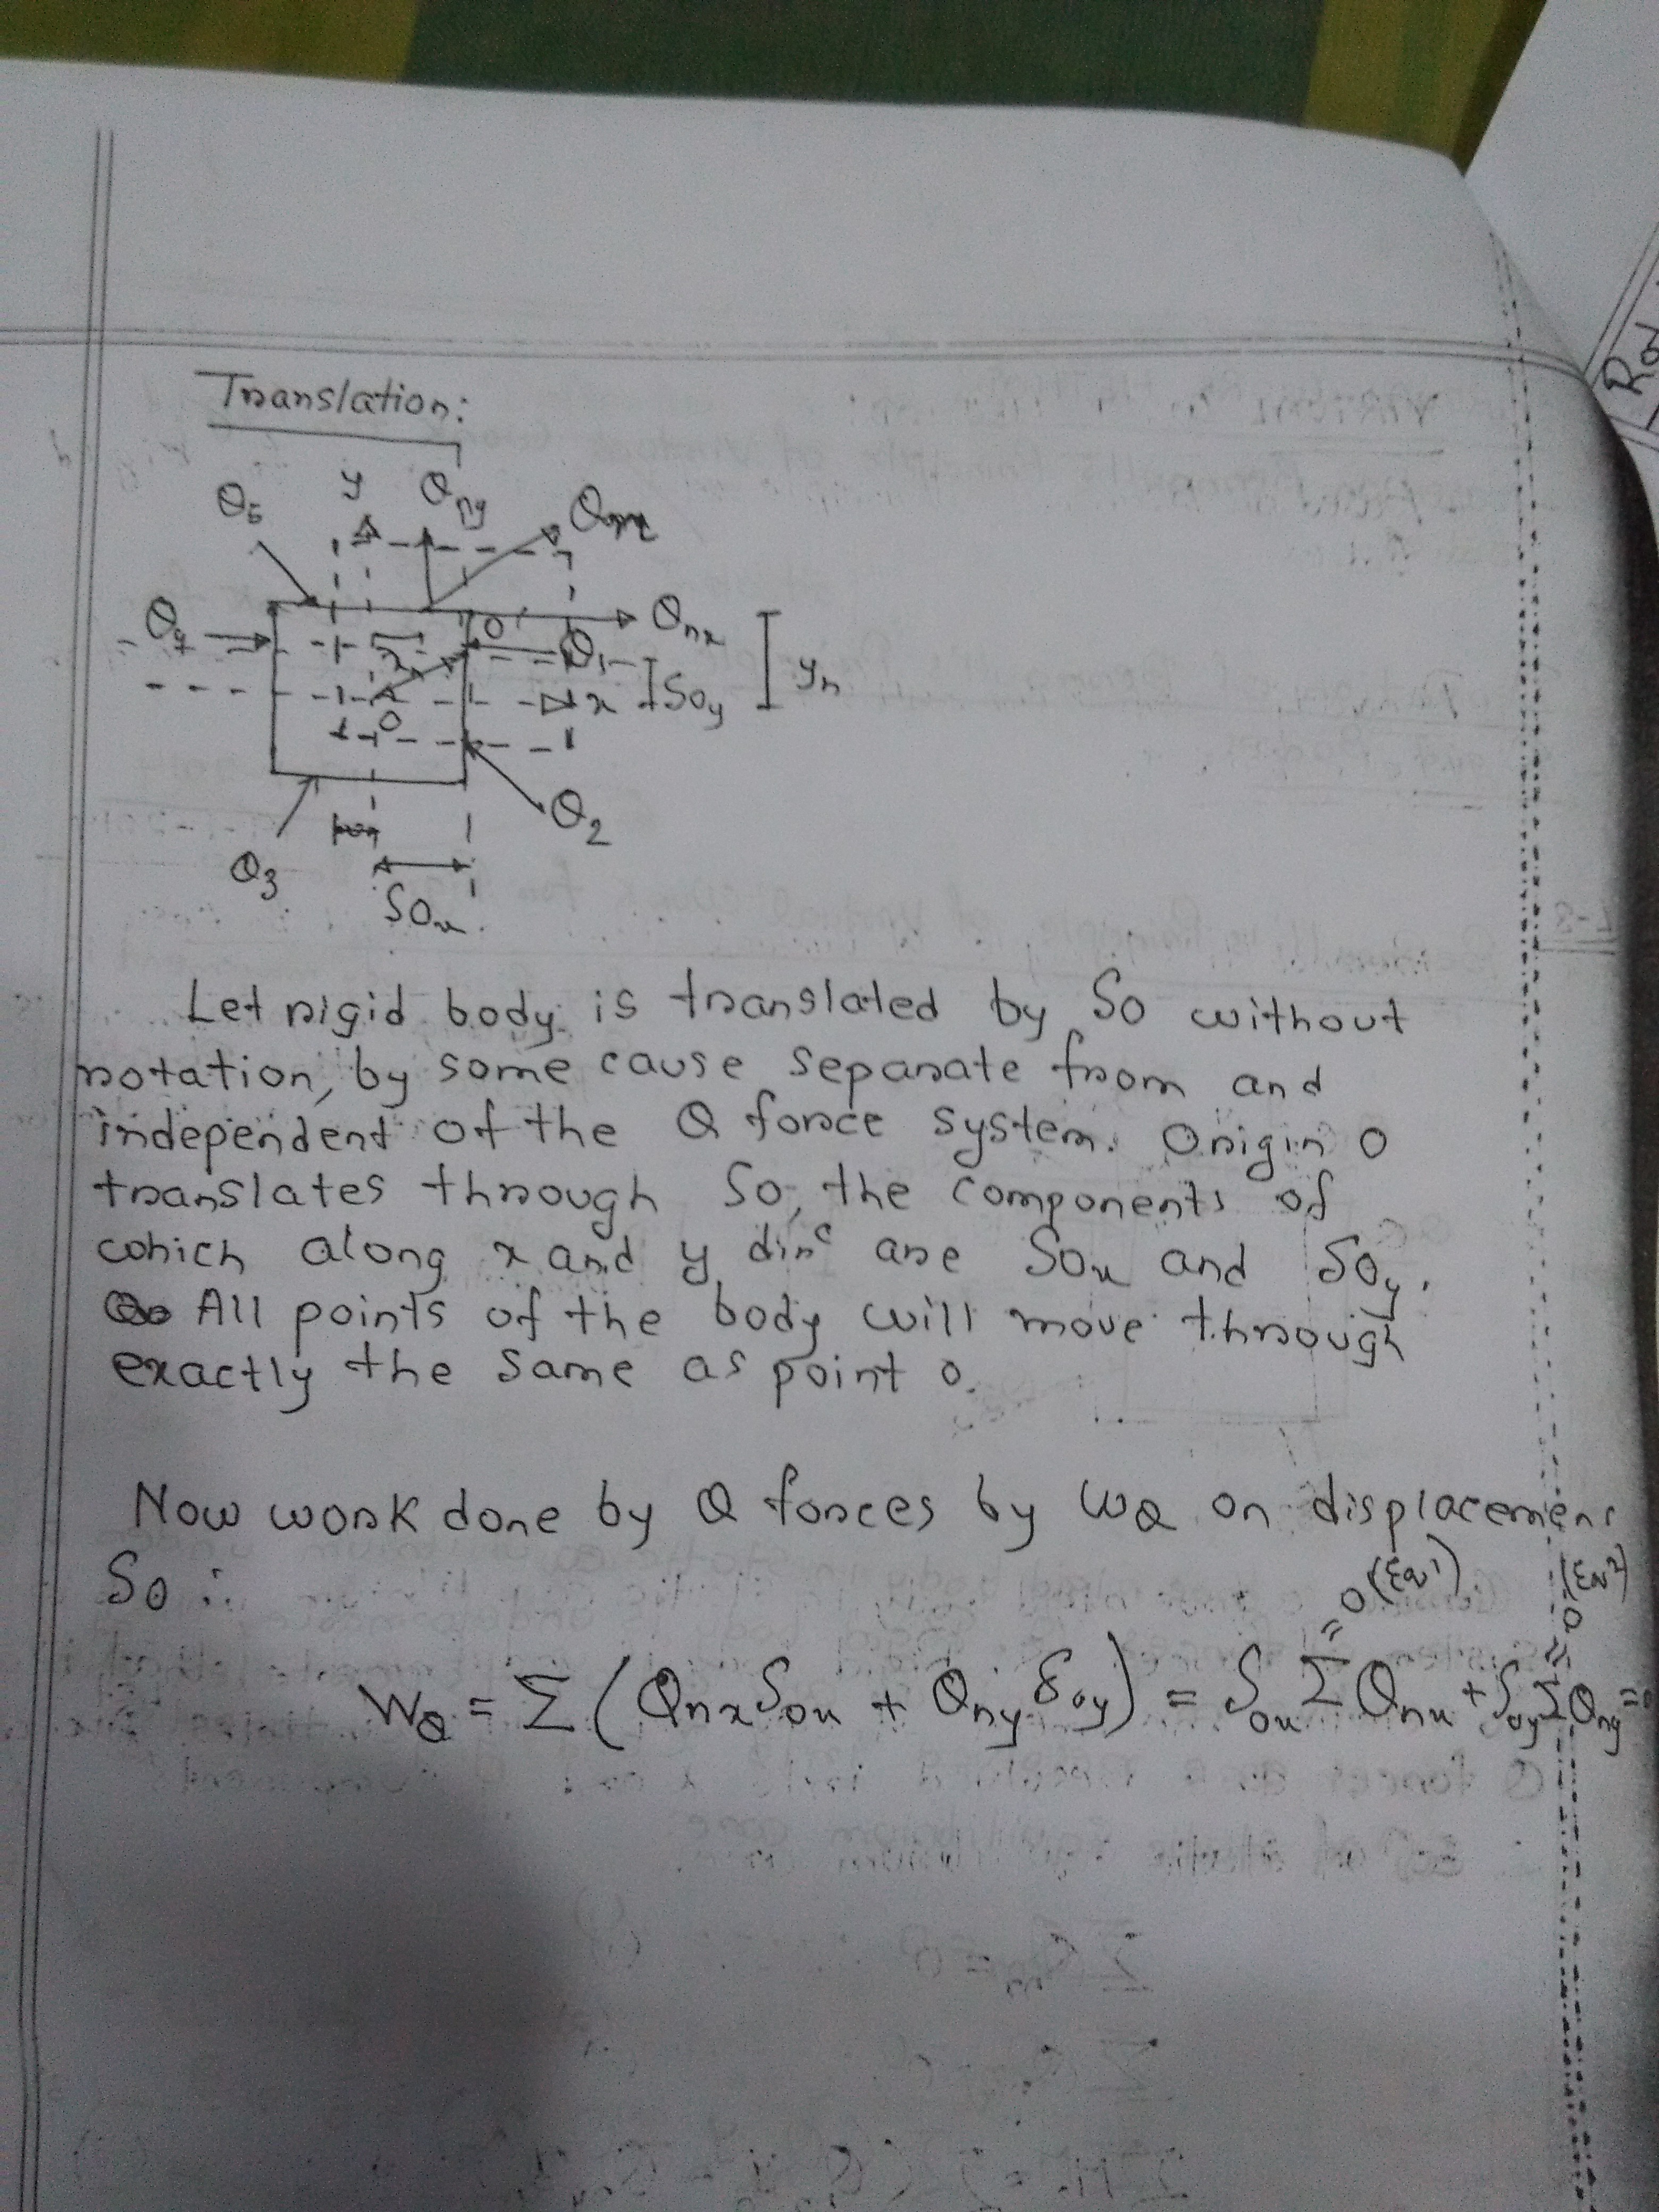 Translation:
y
Q5
Qny
Qn
Q4
O'
Qnx
Q1
yn
x
δoy
O
Q2
Q3
δox
Let rigid body is translated by δo without
rotation, by some cause separate from and
independent of the Q force system. Origin o
translates through δo, the components of
which along x and y dirⁿ are δox and δoy.
All points of the body will move through
exactly the same as point o.
Now work done by Q forces by WQ on displacement
δo ∴
=0 (Eqⁿ1) =0 (Eqⁿ2)
WQ = Σ (Qnx δox + Qny δoy) = δox Σ Qnx + δoy Σ Qny = 0